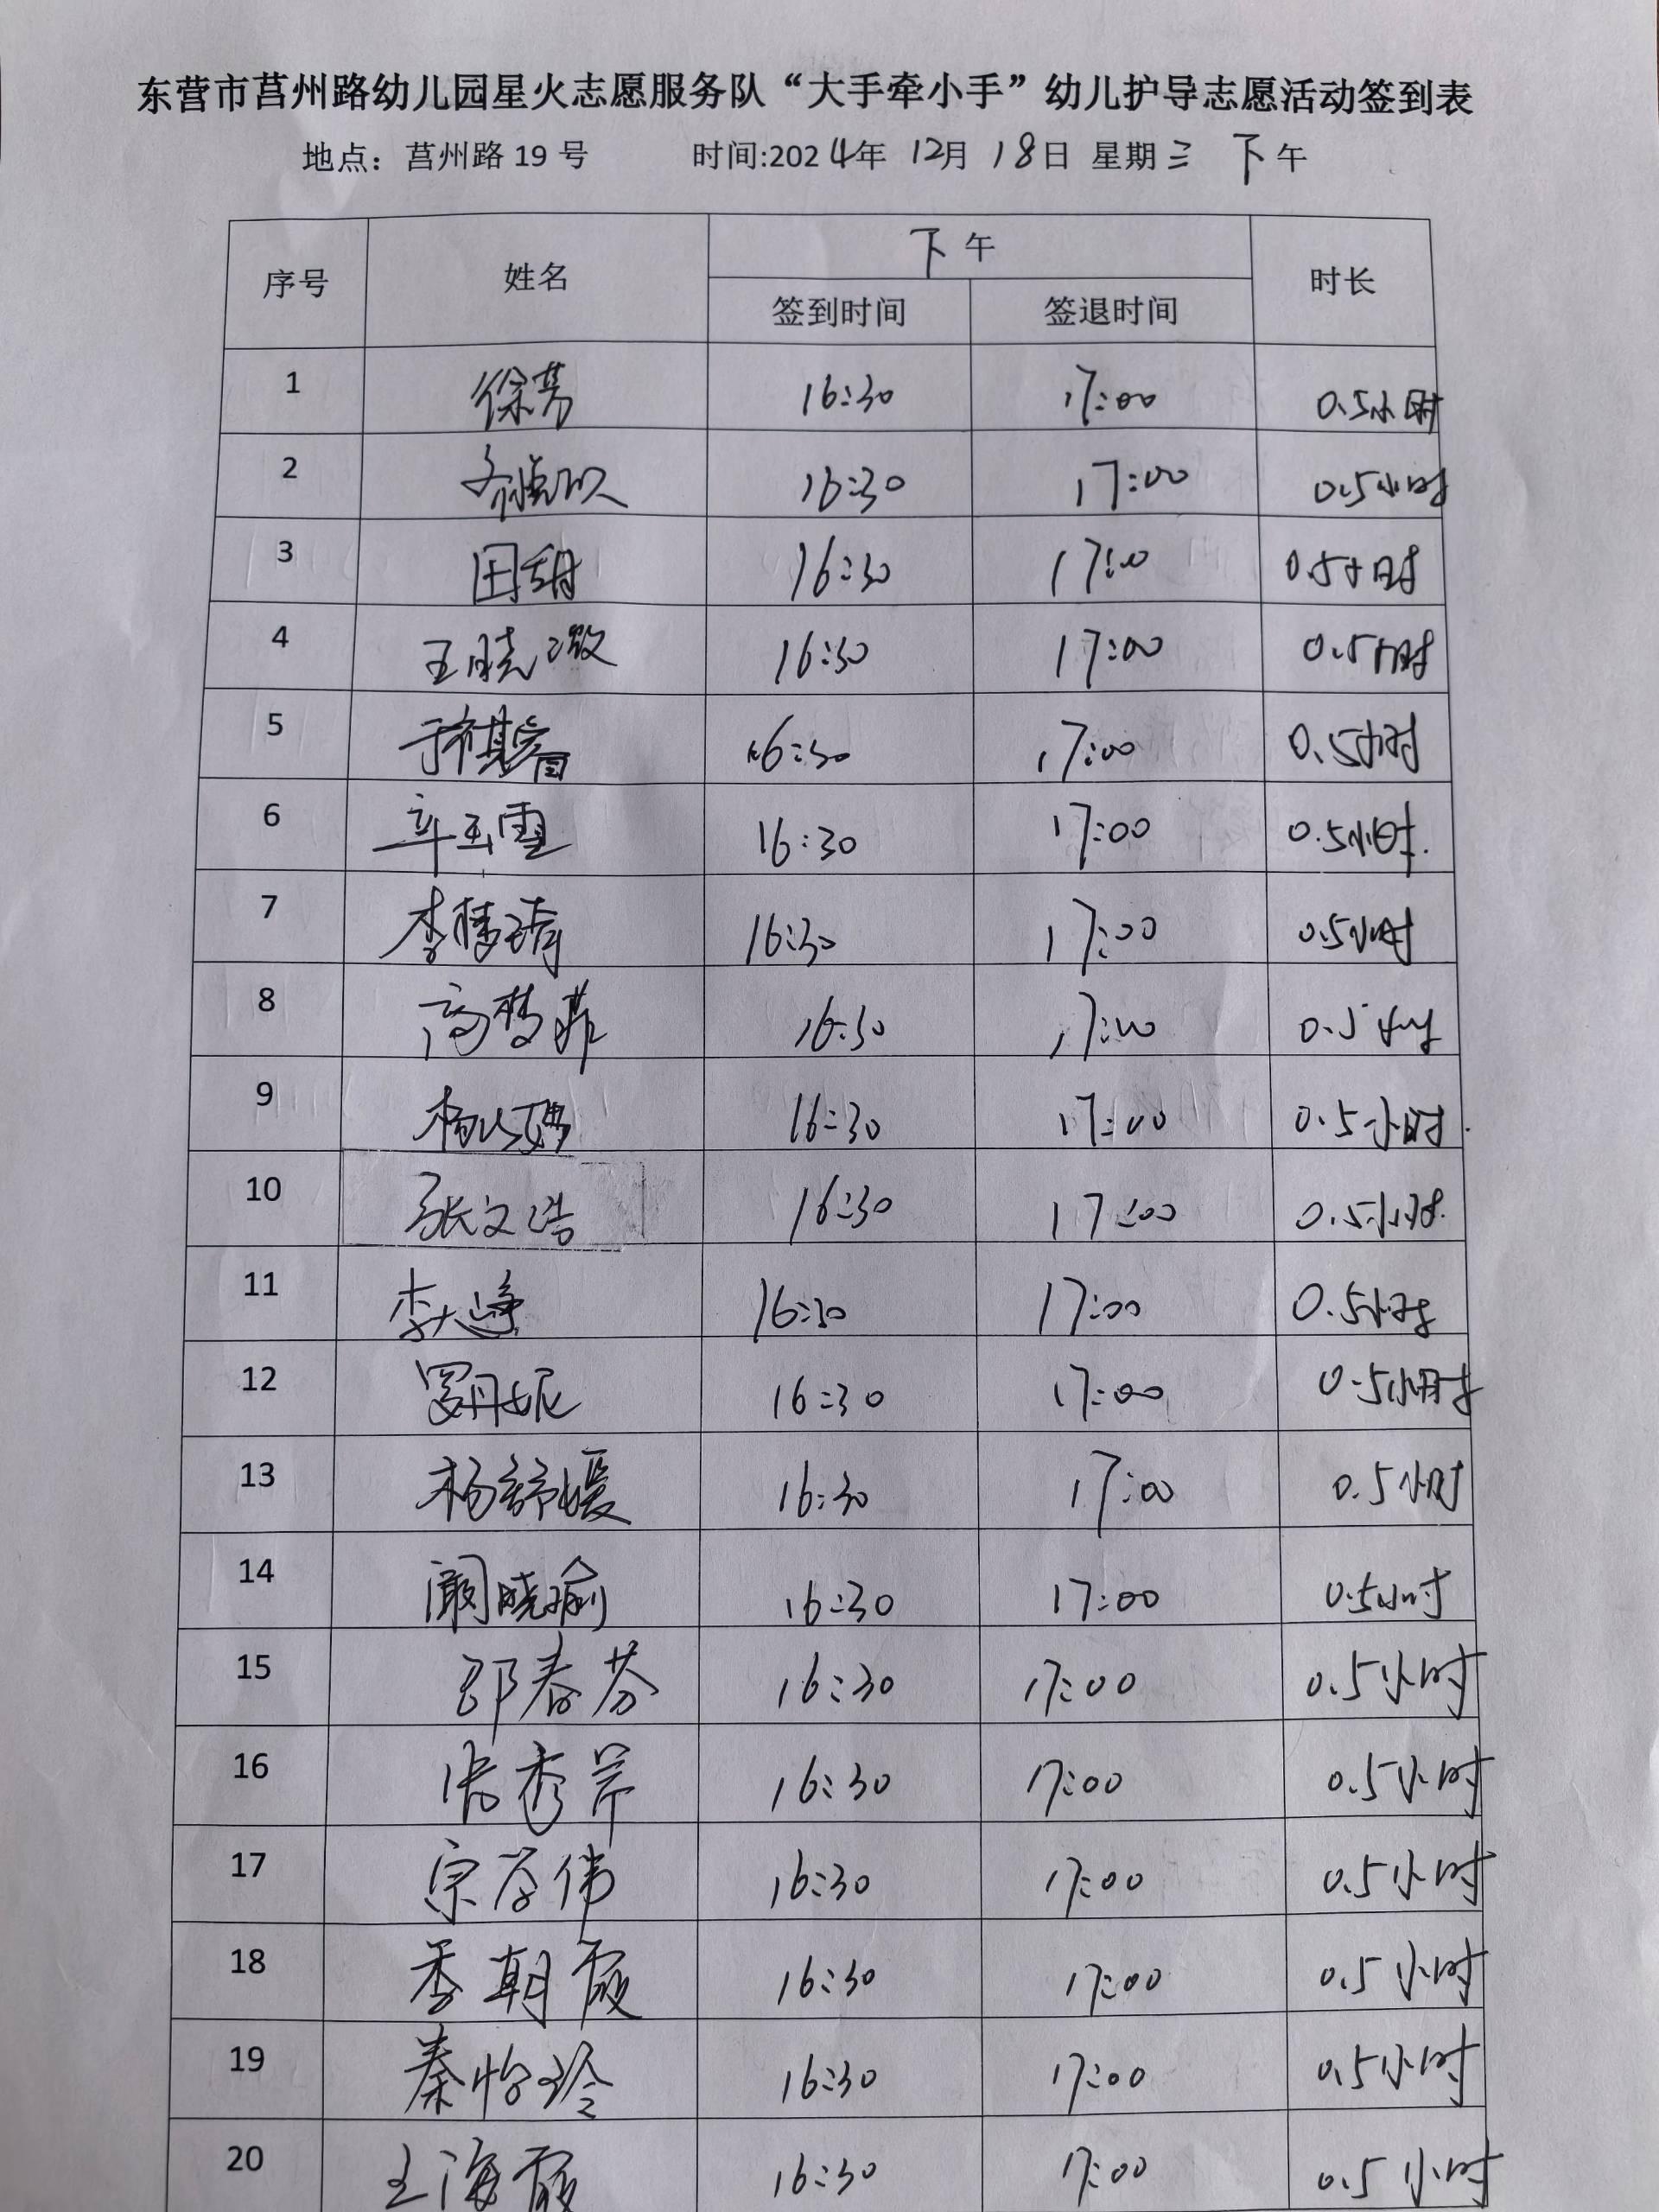 东营市莒州路幼儿园星火志愿服务队“大手牵小手”幼儿护导志愿活动签到表
地点：莒州路 19 号 时间:2024年 12月 18日 星期三 下午
序号 姓名 下午 时长
签到时间 签退时间
1 徐芳 16:30 17:00 0.5小时
2 16:30 17:00 0.5小时
3 田甜 16:30 17:00 0.5小时
4 王晓溦 16:30 17:00 0.5小时
5 于祺 16:30 17:00 0.5小时
6 辛玉雪 16:30 17:00 0.5小时.
7 李倩 16:30 17:00 0.5小时
8 高梦菲 16:30 17:00 0.5小时
9 杨 16:30 17:00 0.5小时.
10 张文浩 16:30 17:00 0.5小时.
11 李 16:30 17:00 0.5小时
12 罗丹妮 16:30 17:00 0.5小时
13 杨舒媛 16:30 17:00 0.5小时
14 阚晓瑜 16:30 17:00 0.5小时
15 邵春芬 16:30 17:00 0.5小时
16 张秀芹 16:30 17:00 0.5小时
17 宗学伟 16:30 17:00 0.5小时
18 季朝霞 16:30 17:00 0.5小时
19 秦怡玲 16:30 17:00 0.5小时
20 王海霞 16:30 17:00 0.5小时